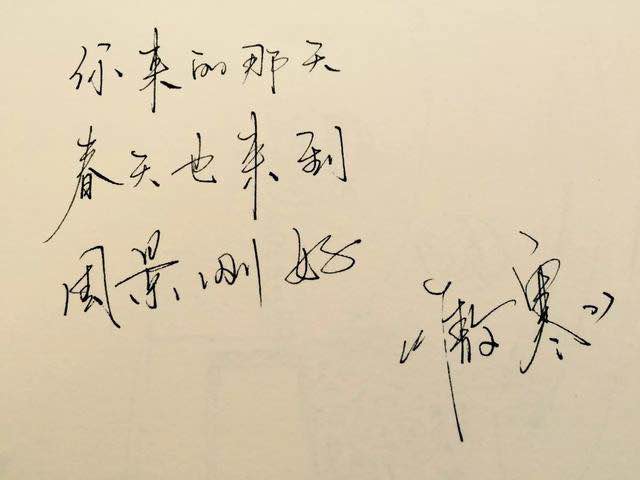 你来的那天
春天也来到
风景刚好
《傲寒》